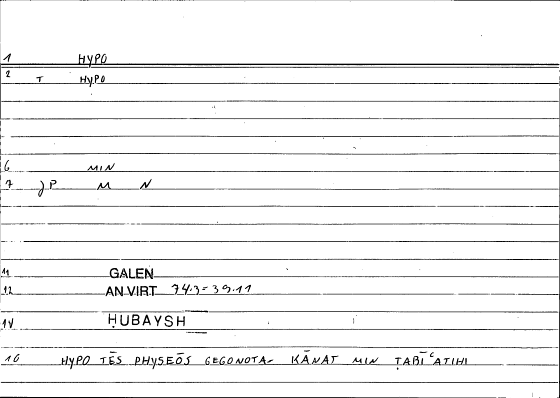 1 HYPO
2 T HYPO
6 MIN
7 JP M N
11 GALEN
12 AN VIRT 74.3 = 39.11
14 ḤUBAYSH
16 HYPO TĒS PHYSEŌS GEGONOTA - KĀNAT MIN ṬABĪʿATIHI